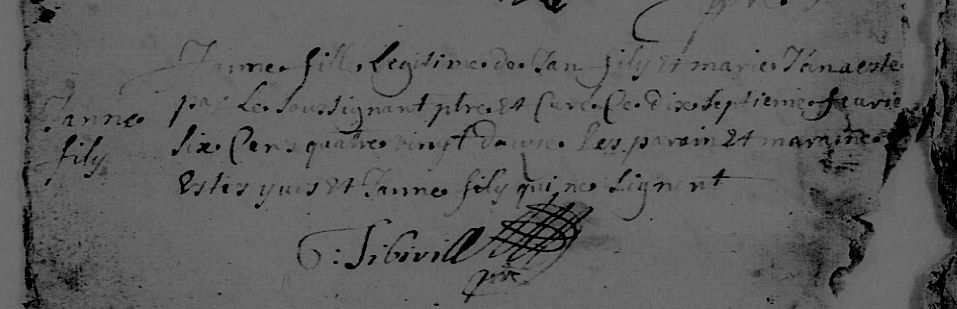 Janne fille Legitime de Jan fily et marie
Janne
fily
par Le soussignant ptre et Curé Ce dix septieme feurie
six Cens quatre vingt douze. Les parain et maraine
estes yues et Janne fily qui ne signent
G: Sibirill
ptre